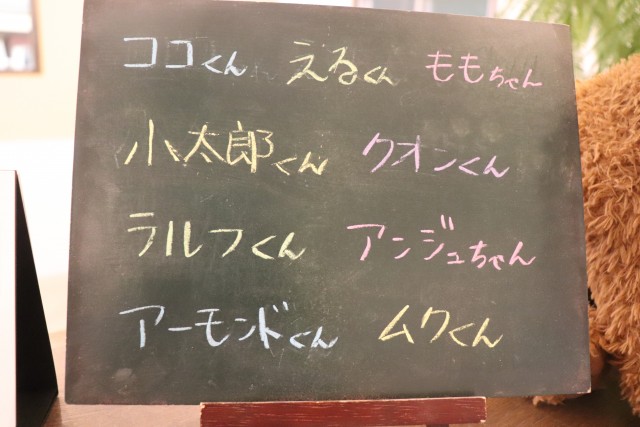 ココくん えるくん ももちゃん
小太郎くん クオンくん
ラルフくん アンジュちゃん
アーモンドくん ムクくん